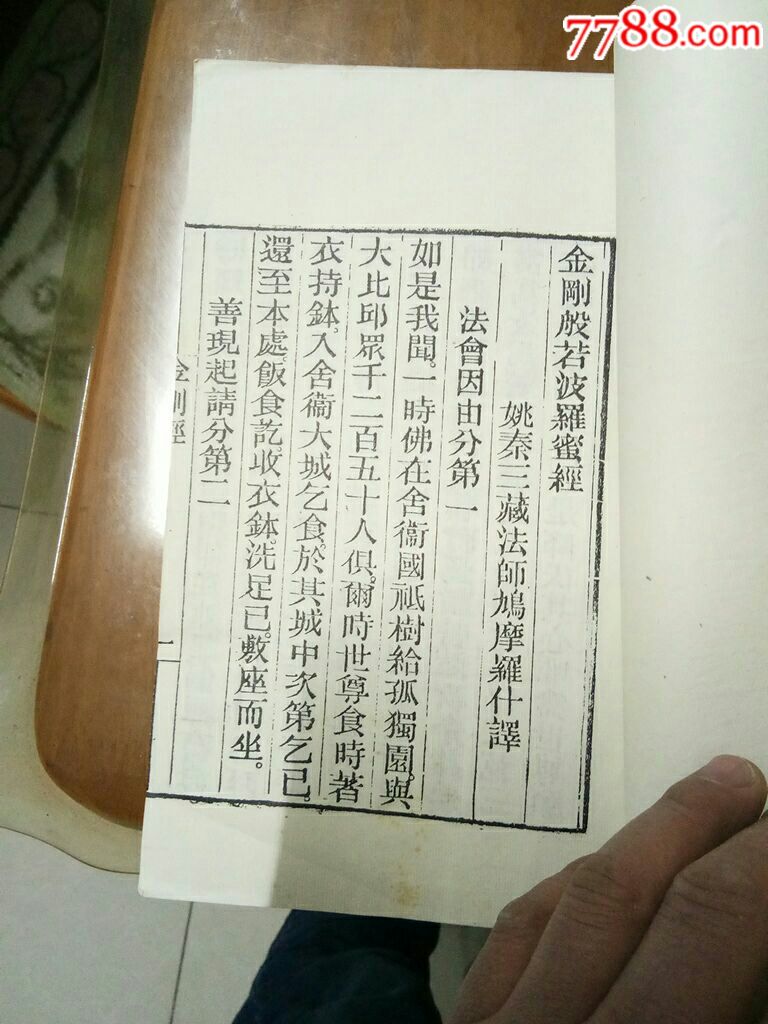 7788.com
金剛般若波羅蜜經
姚秦三藏法師鳩摩羅什譯
法會因由分第一
如是我聞。一時佛在舍衞國祇樹給孤獨園。與
大比邱眾千二百五十人俱。爾時世尊食時著
衣持鉢。入舍衞大城乞食。於其城中次第乞已。
還至本處。飯食訖。收衣鉢。洗足已。敷座而坐。
善現起請分第二
金剛經
二